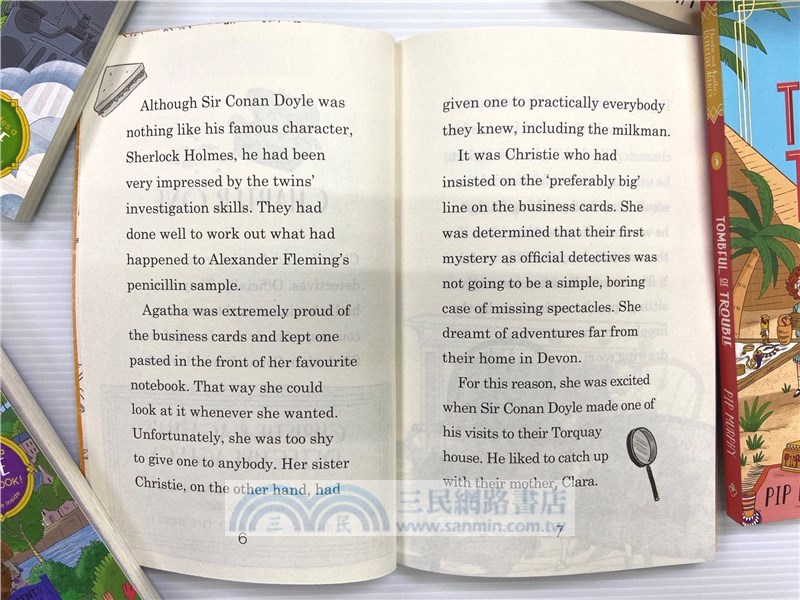 Although Sir Conan Doyle was
nothing like his famous character,
Sherlock Holmes, he had been
very impressed by the twins'
investigation skills. They had
done well to work out what had
happened to Alexander Fleming's
penicillin sample.
Agatha was extremely proud of
the business cards and kept one
pasted in the front of her favourite
notebook. That way she could
look at it whenever she wanted.
Unfortunately, she was too shy
to give one to anybody. Her sister
Christie, on the other hand, had
6
given one to practically everybody
they knew, including the milkman.
It was Christie who had
insisted on the 'preferably big'
line on the business cards. She
was determined that their first
mystery as official detectives was
not going to be a simple, boring
case of missing spectacles. She
dreamt of adventures far from
their home in Devon.
For this reason, she was excited
when Sir Conan Doyle made one of
his visits to their Torquay
house. He liked to catch up
with their mother, Clara.
7
三民網路書店
www.sanmin.com.tw
三 民
5
TOMBFUL OF TROUBLE
PIP MURPHY
PIP